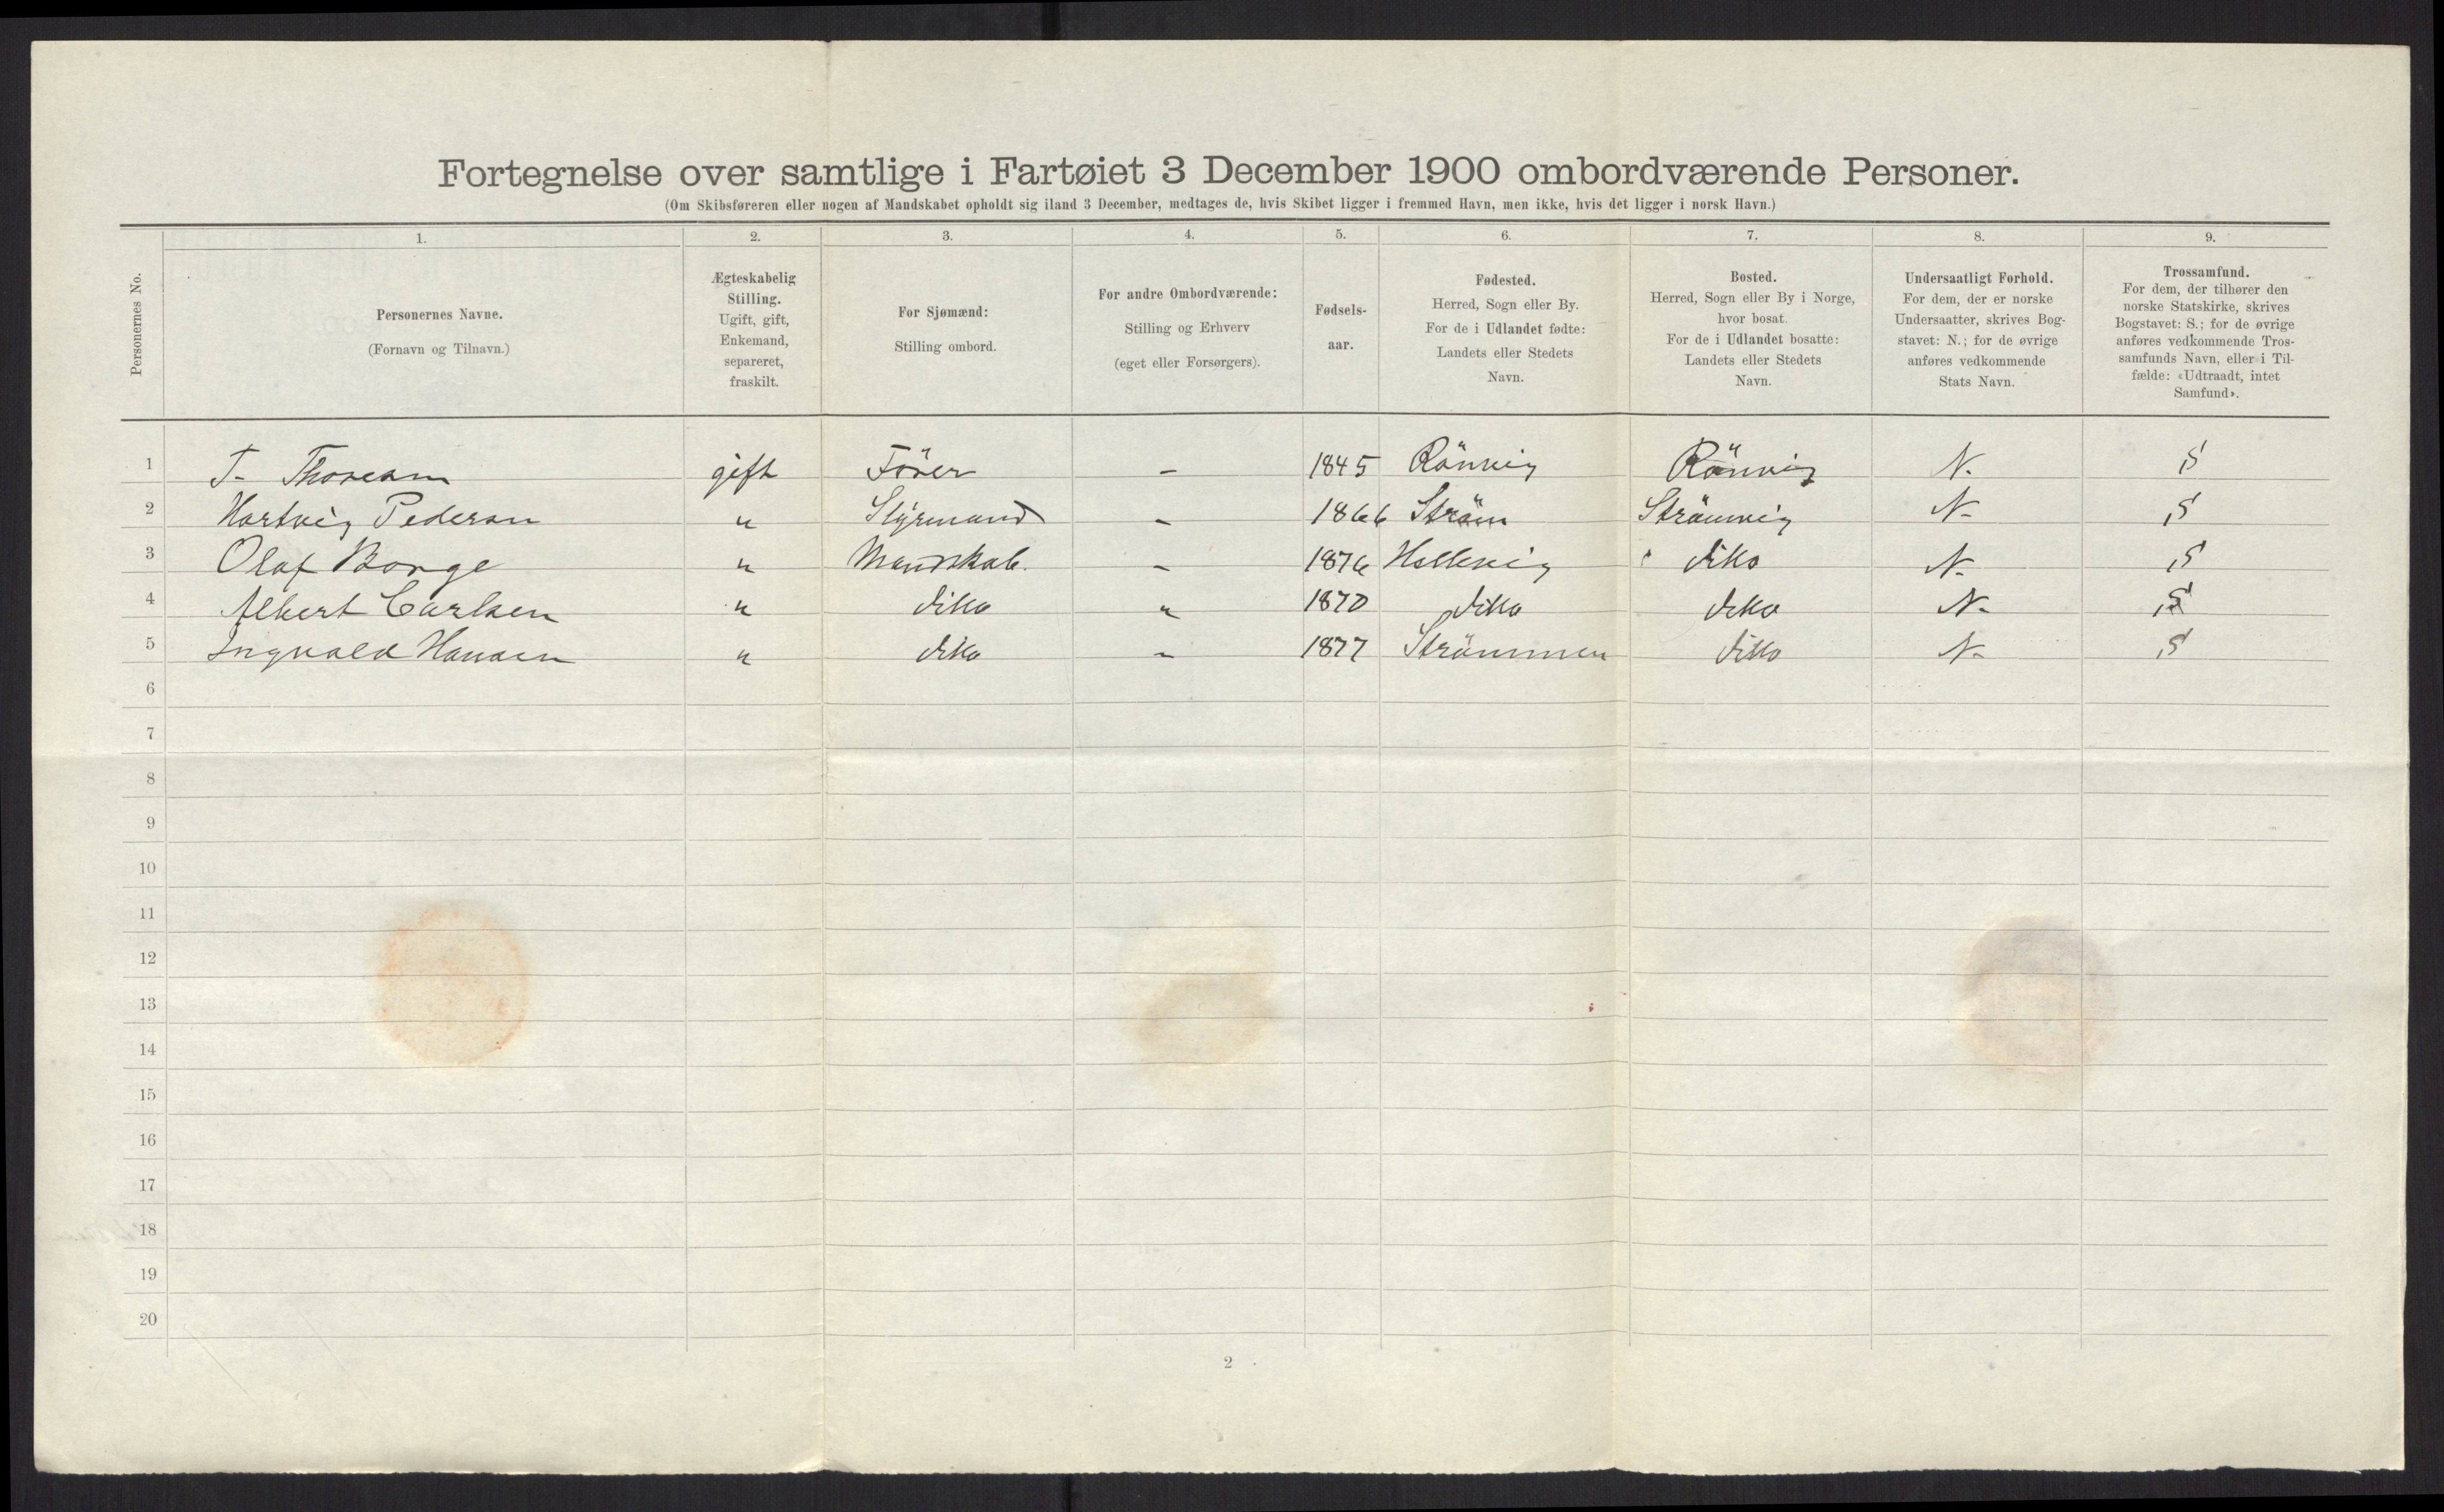 Fortegnelse over samtlige i Fartøiet 3 December 1900 ombordværende Personer.
(Om Skibsføreren eller nogen af Mandskabet opholdt sig iland 3 December, medtages de, hvis Skibet ligger i fremmed Havn, men ikke, hvis det ligger i norsk Havn.)
1. 2. 3. 4. 5. 6. 7. 8. 9.
Personernes No.
Personernes Navne.
(Fornavn og Tilnavn.)
Ægteskabelig
Stilling.
Ugift, gift,
Enkemand,
separeret,
fraskilt.
For Sjømænd:
Stilling ombord.
For andre Ombordværende:
Stilling og Erhverv
(eget eller Forsørgers).
Fødsels-
aar.
Fødested.
Herred, Sogn eller By.
For de i Udlandet fødte:
Landets eller Stedets
Navn.
Bosted.
Herred, Sogn eller By i Norge,
hvor bosat.
For de i Udlandet bosatte:
Landets eller Stedets
Navn.
Undersaatligt Forhold.
For dem, der er norske
Undersaatter, skrives Bog-
stavet: N.; for de øvrige
anføres vedkommende
Stats Navn.
Trossamfund.
For dem, der tilhører den
norske Statskirke, skrives
Bogstavet: S.; for de øvrige
anføres vedkommende Tros-
samfunds Navn, eller i Til-
fælde: «Udtraadt, intet
Samfund».
1 T- Thoresen gift Förer - 1845 Rönvig Rönvig N. S
2 Hartvig Pedersen " Styrmand - 1866 Ström Strömvig N- S
3 Olaf Borge " Mandskab. - 1876 Hellevig ditto N- S
4 Albert Carlsen " ditto " 1870 ditto ditto N- S
5 Ingvald Hansen " ditto - 1877 Strömmen ditto N- S
6
7
8
9
10
11
12
13
14
15
16
17
18
19
20
2